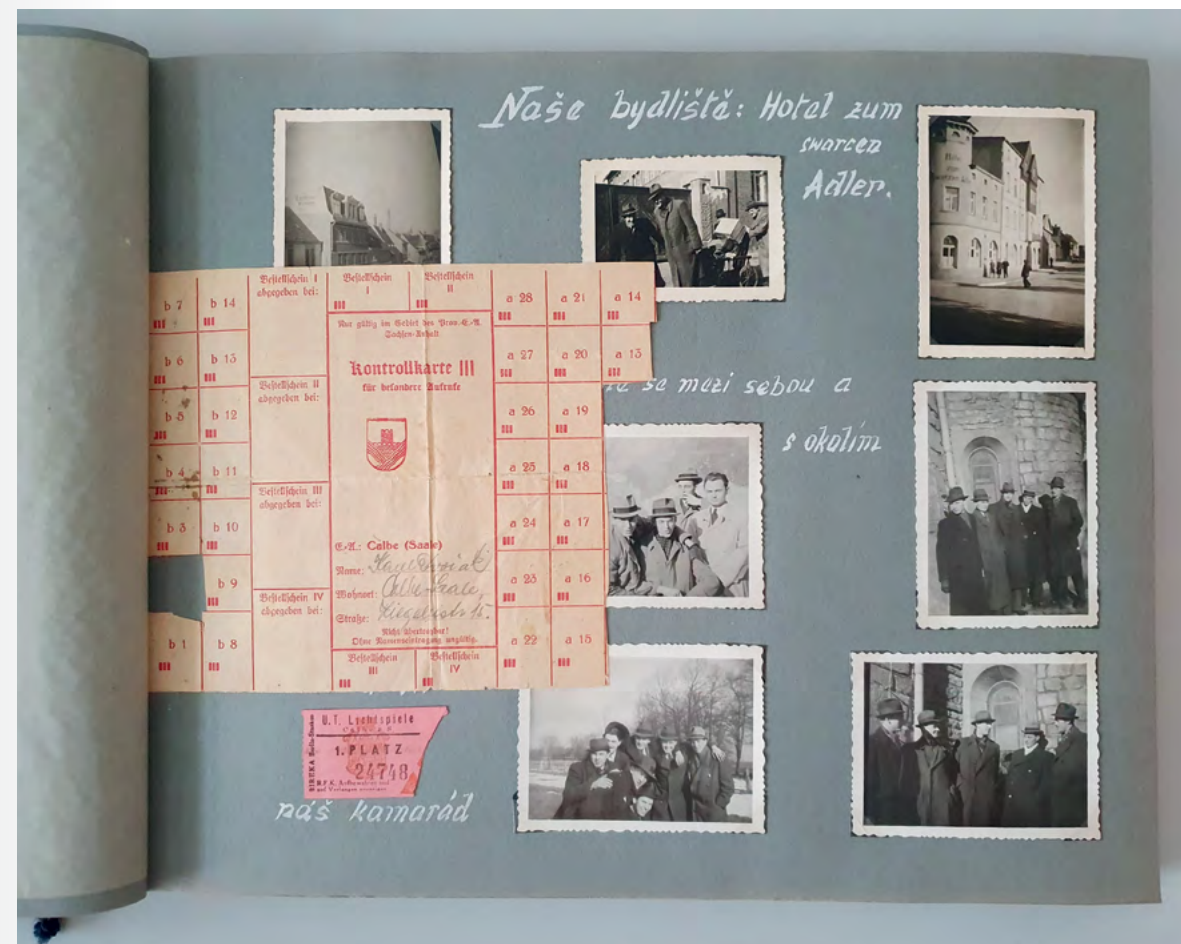 Naše bydliště: Hotel zum
swarcen
Adler.
se mezi sebou a
s okolím
náš kamarád
b 7
b 14
b 6
b 13
b 5
b 12
b 4
b 11
b 3
b 10
b 9
b 1
b 8
Bestellschein I
abgegeben bei:
Bestellschein II
abgegeben bei:
Bestellschein III
abgegeben bei:
Bestellschein IV
abgegeben bei:
Bestellschein
I
Bestellschein
II
Nur gültig im Gebiet des Prov.-E.-A.
Sachsen-Anhalt
Kontrollkarte III
für besondere Aufrufe
E.-A.: Calbe (Saale)
Name:
Wohnort: Calbe Saale,
Straße:
Nicht übertragbar!
Ohne Namenseintragung ungültig.
Bestellschein
III
Bestellschein
IV
a 28
a 21
a 14
a 27
a 20
a 13
a 26
a 19
a 25
a 18
a 24
a 17
a 23
a 16
a 22
a 15
U.T. Lichtspiele
1. PLATZ
24748